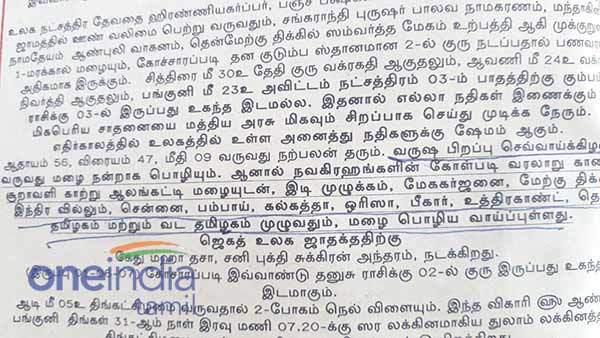 உலக நட்சத்திர தேவதை ஹிரண்ணியகர்ப்பர், பஞ்ச
ஜாமத்தில் ஊண் வலிமை பெற்று வருவதும், சங்கராந்தி புருஷர் பாலவ நாமகரணம், மந்தாகி
நாமதேயம் ஆண்புலி வாகனம், தென்மேற்கு திக்கில் ஸம்வர்த்த மேகம் உற்பத்தி ஆகி முக்குறு
1-மரக்கால் மழையும், கோச்சாரப்படி தன குடும்ப ஸ்தானமான 2-ல் குரு நடப்பதால் பணவ
அதிகமாக இருக்கும். சித்திரை மீ 30உ தேதி குரு வக்ரகதி ஆகுதலும், ஆவணி மீ 24உ வக்
நிவர்த்தி ஆகுதலும், பங்குனி மீ 23உ அவிட்டம் நட்சத்திரம் 03-ம் பாதத்திற்கு கும்ப
ராசிக்கு 03-ல் இருப்பது உகந்த இடமல்ல. இதனால் எல்லா நதிகள் இணைக்கும்
மிகபெரிய சாதனையை மத்திய அரசு மிகவும் சிறப்பாக செய்து முடிக்க நேரும்.
எதிர்காலத்தில் உலகத்தில் உள்ள அனைத்து நதிகளுக்கு ஷேமம் ஆகும்.
ஆதாயம் 56, விரையம் 47, மீதி 09 வருவது நற்பலன் தரும். வருஷ பிறப்பு செவ்வாய்க்கிழ
வருவது மழை நன்றாக பொழியும். ஆனால் நவகிரஹங்களின் கோள்படி வரலாறு காண
சூறாவளி காற்று ஆலங்கட்டி மழையுடன், இடி முழுக்கம், மேககர்ஜனை, மேற்கு திக்
இந்திர வில்லும், சென்னை, பம்பாய், கல்கத்தா, ஒரிஸா, பீகார், உத்திரகாண்ட், தெ
தமிழகம் மற்றும் வட தமிழகம் முழுவதும், மழை பொழிய வாய்ப்புள்ளது.
ஜெகத் உலக ஜாதகத்திற்கு
கேது மஹா தசா, சனி புக்தி சுக்கிரன் அந்தரம், நடக்கிறது.
கோச்சாரப்படி இவ்வாண்டு தனுசு ராசிக்கு 02-ல் குரு இருப்பது உகந்த
இடமாகும்.
oneindia
tamil
ஆடி மீ 05உ வருவதால் 2-போகம் நெல் விளையும். இந்த விகாரி ஆண்
பங்குனி திங்கள் 31-ஆம் நாள் இரவு மணி 07.20-க்கு ஸர லக்கினமாகிய துலாம் லக்கினத்